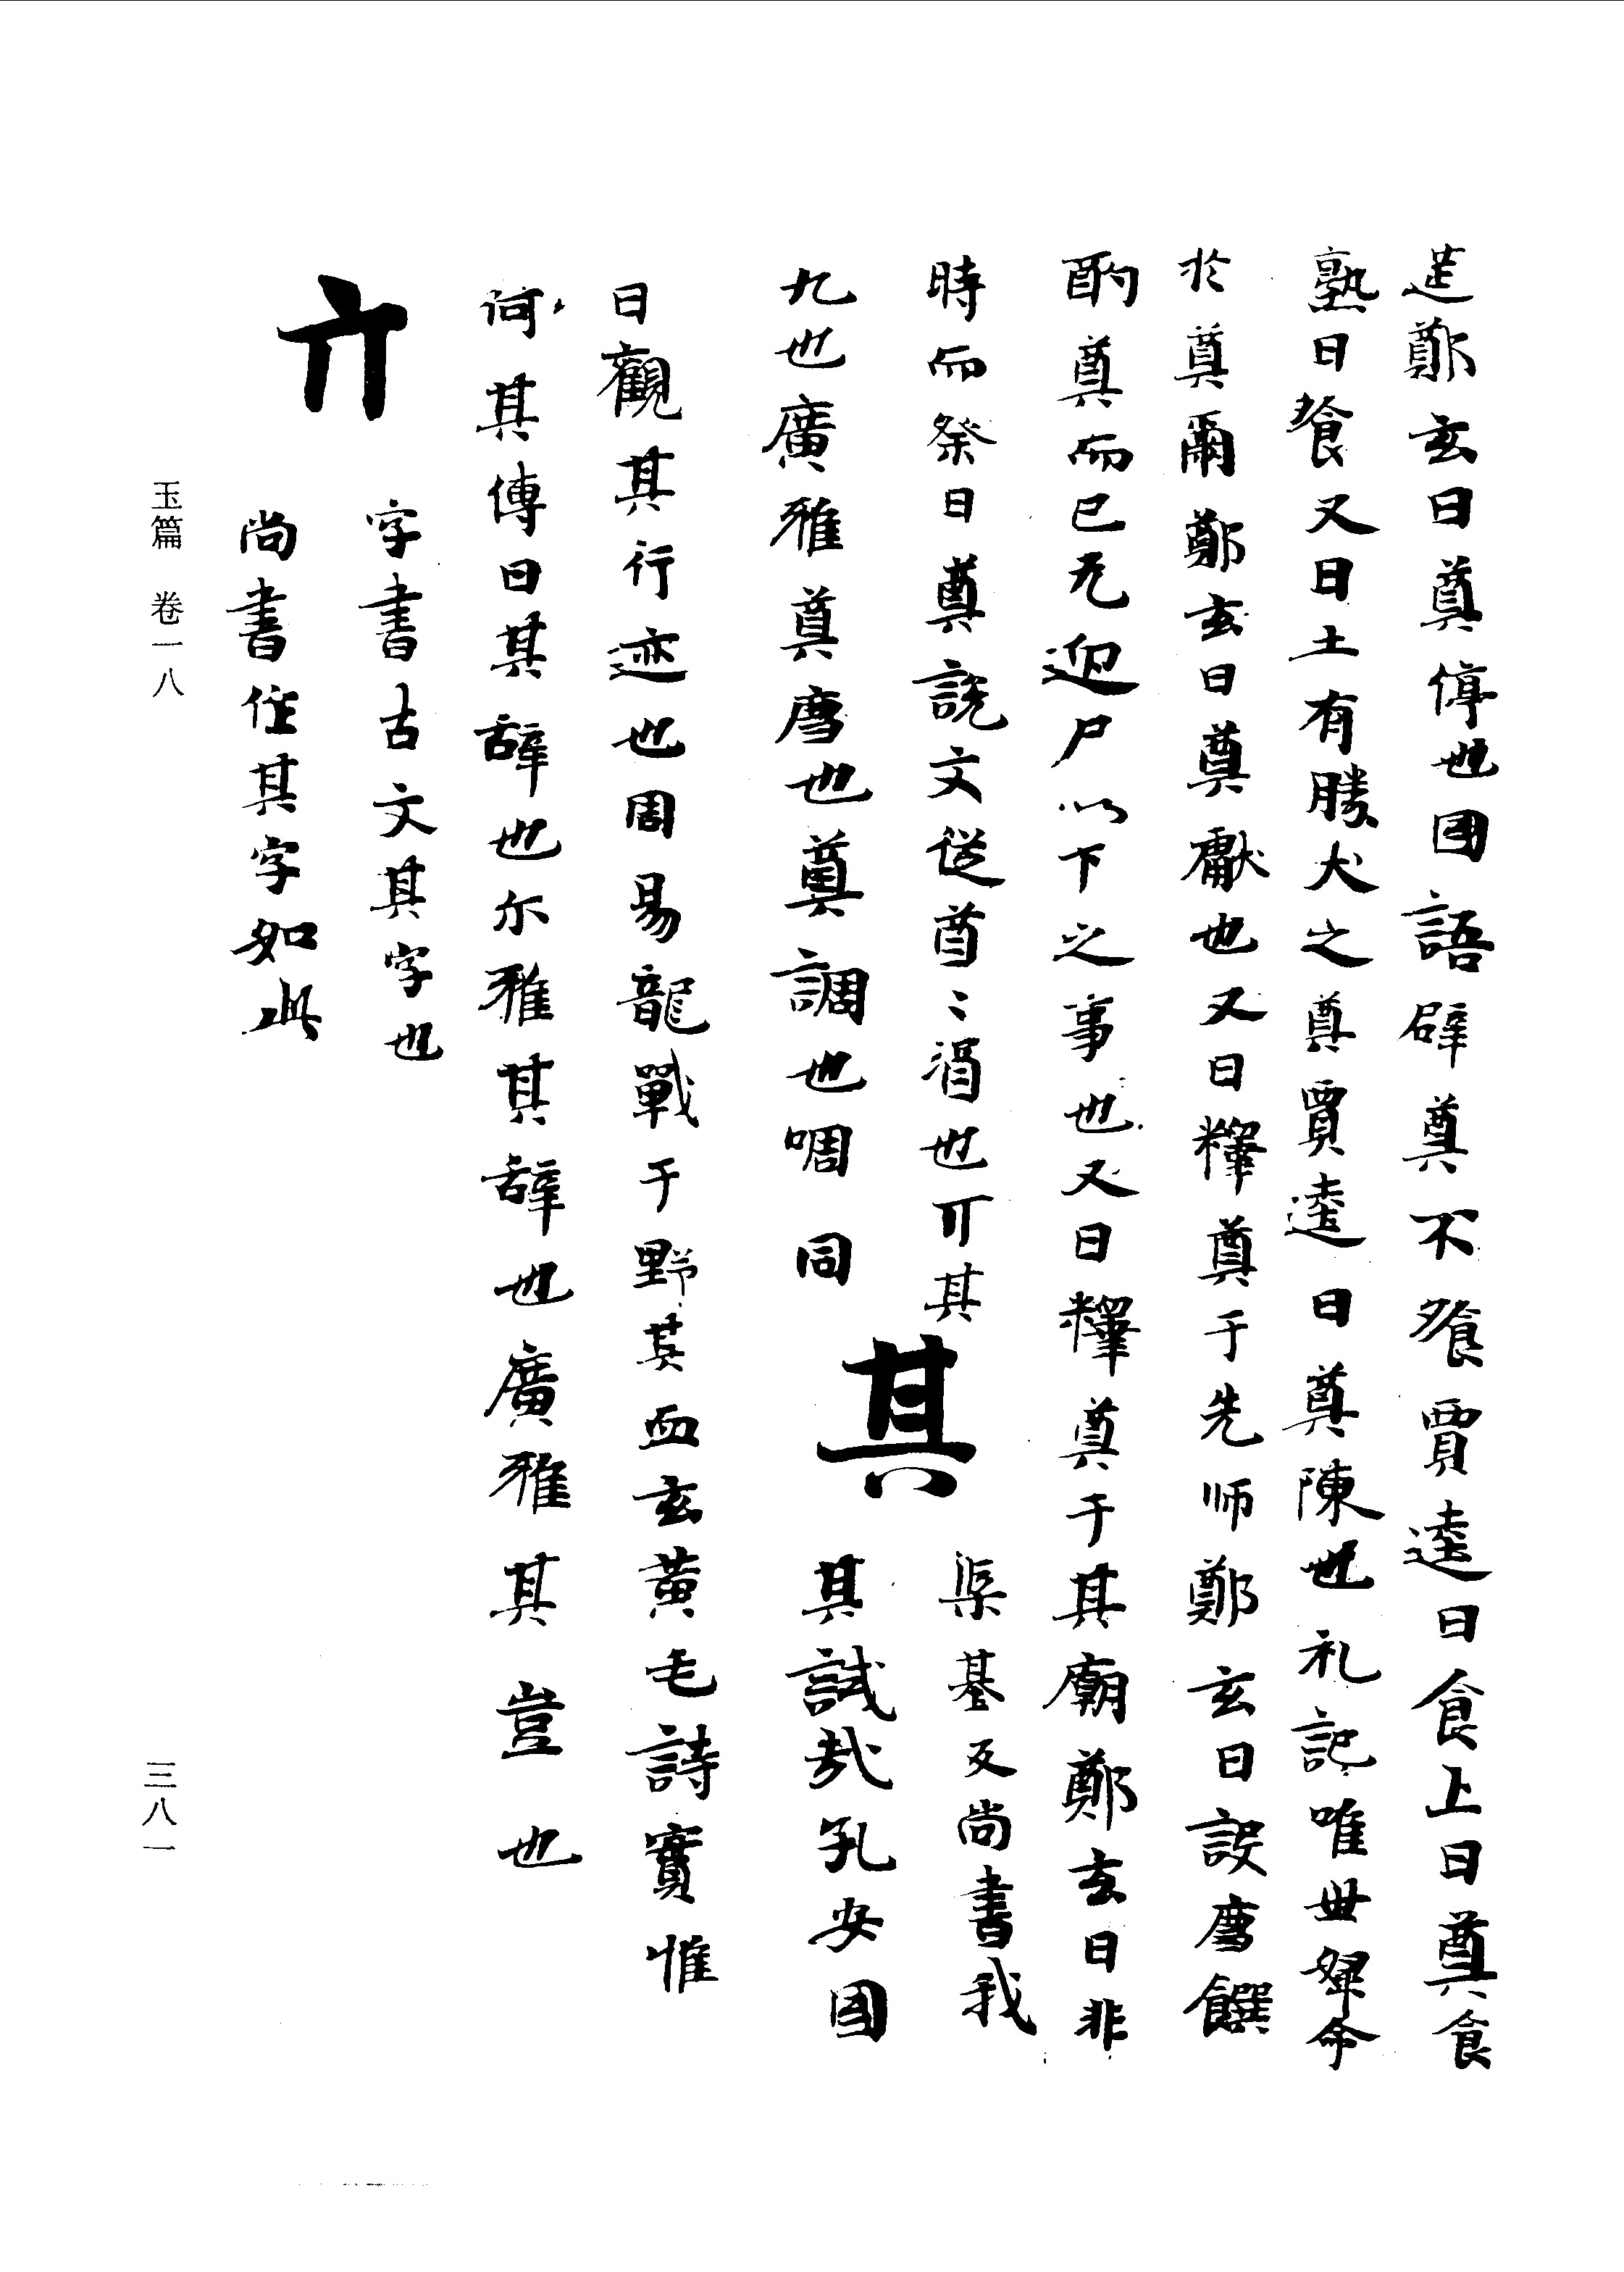 莚鄭玄曰奠停也国語辟奠不飱賈逵曰食上曰奠食
熟曰飱又曰土有勝犬之奠賈逵曰奠陳也礼記唯世婦命
於奠爾鄭玄曰奠獻也又曰釋奠于先师鄭玄曰設廗饌
酌奠而已无迎尸以下之事也又曰釋奠于其廟鄭玄曰非
時而祭曰奠說文從酋〻湑也丌其
九也廣雅奠廗也奠調也啁同
其
渠基反尚書我
其試㢤孔安国
曰觀其行迹也周易龍戰于野其血玄黄毛詩實惟
何其傳曰其辞也尓雅其辞也廣雅其豈也
亓
字書古文其字也
尚書住其字如此
玉篇 卷一八
三八一